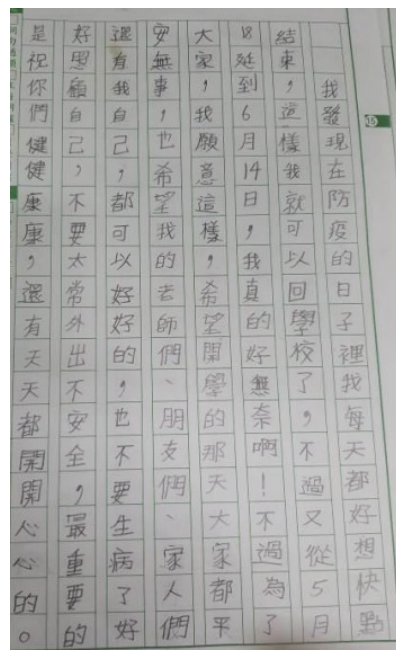 我發現在防疫的日子裡我每天都好想快點
結束，這樣我就可以回學校了，不過又從5月
18延到6月14日，我真的好無奈啊！不過為了
大家，我願意這樣，希望開學的那天大家都平
安無事，也希望我的老師們、朋友們、家人們
還有我自己，都可以好好的，也不要生病了好
好照顧自己，不要太常外出不安全，最重要的
是祝你們健健康康，還有天天都開開心心的。
15